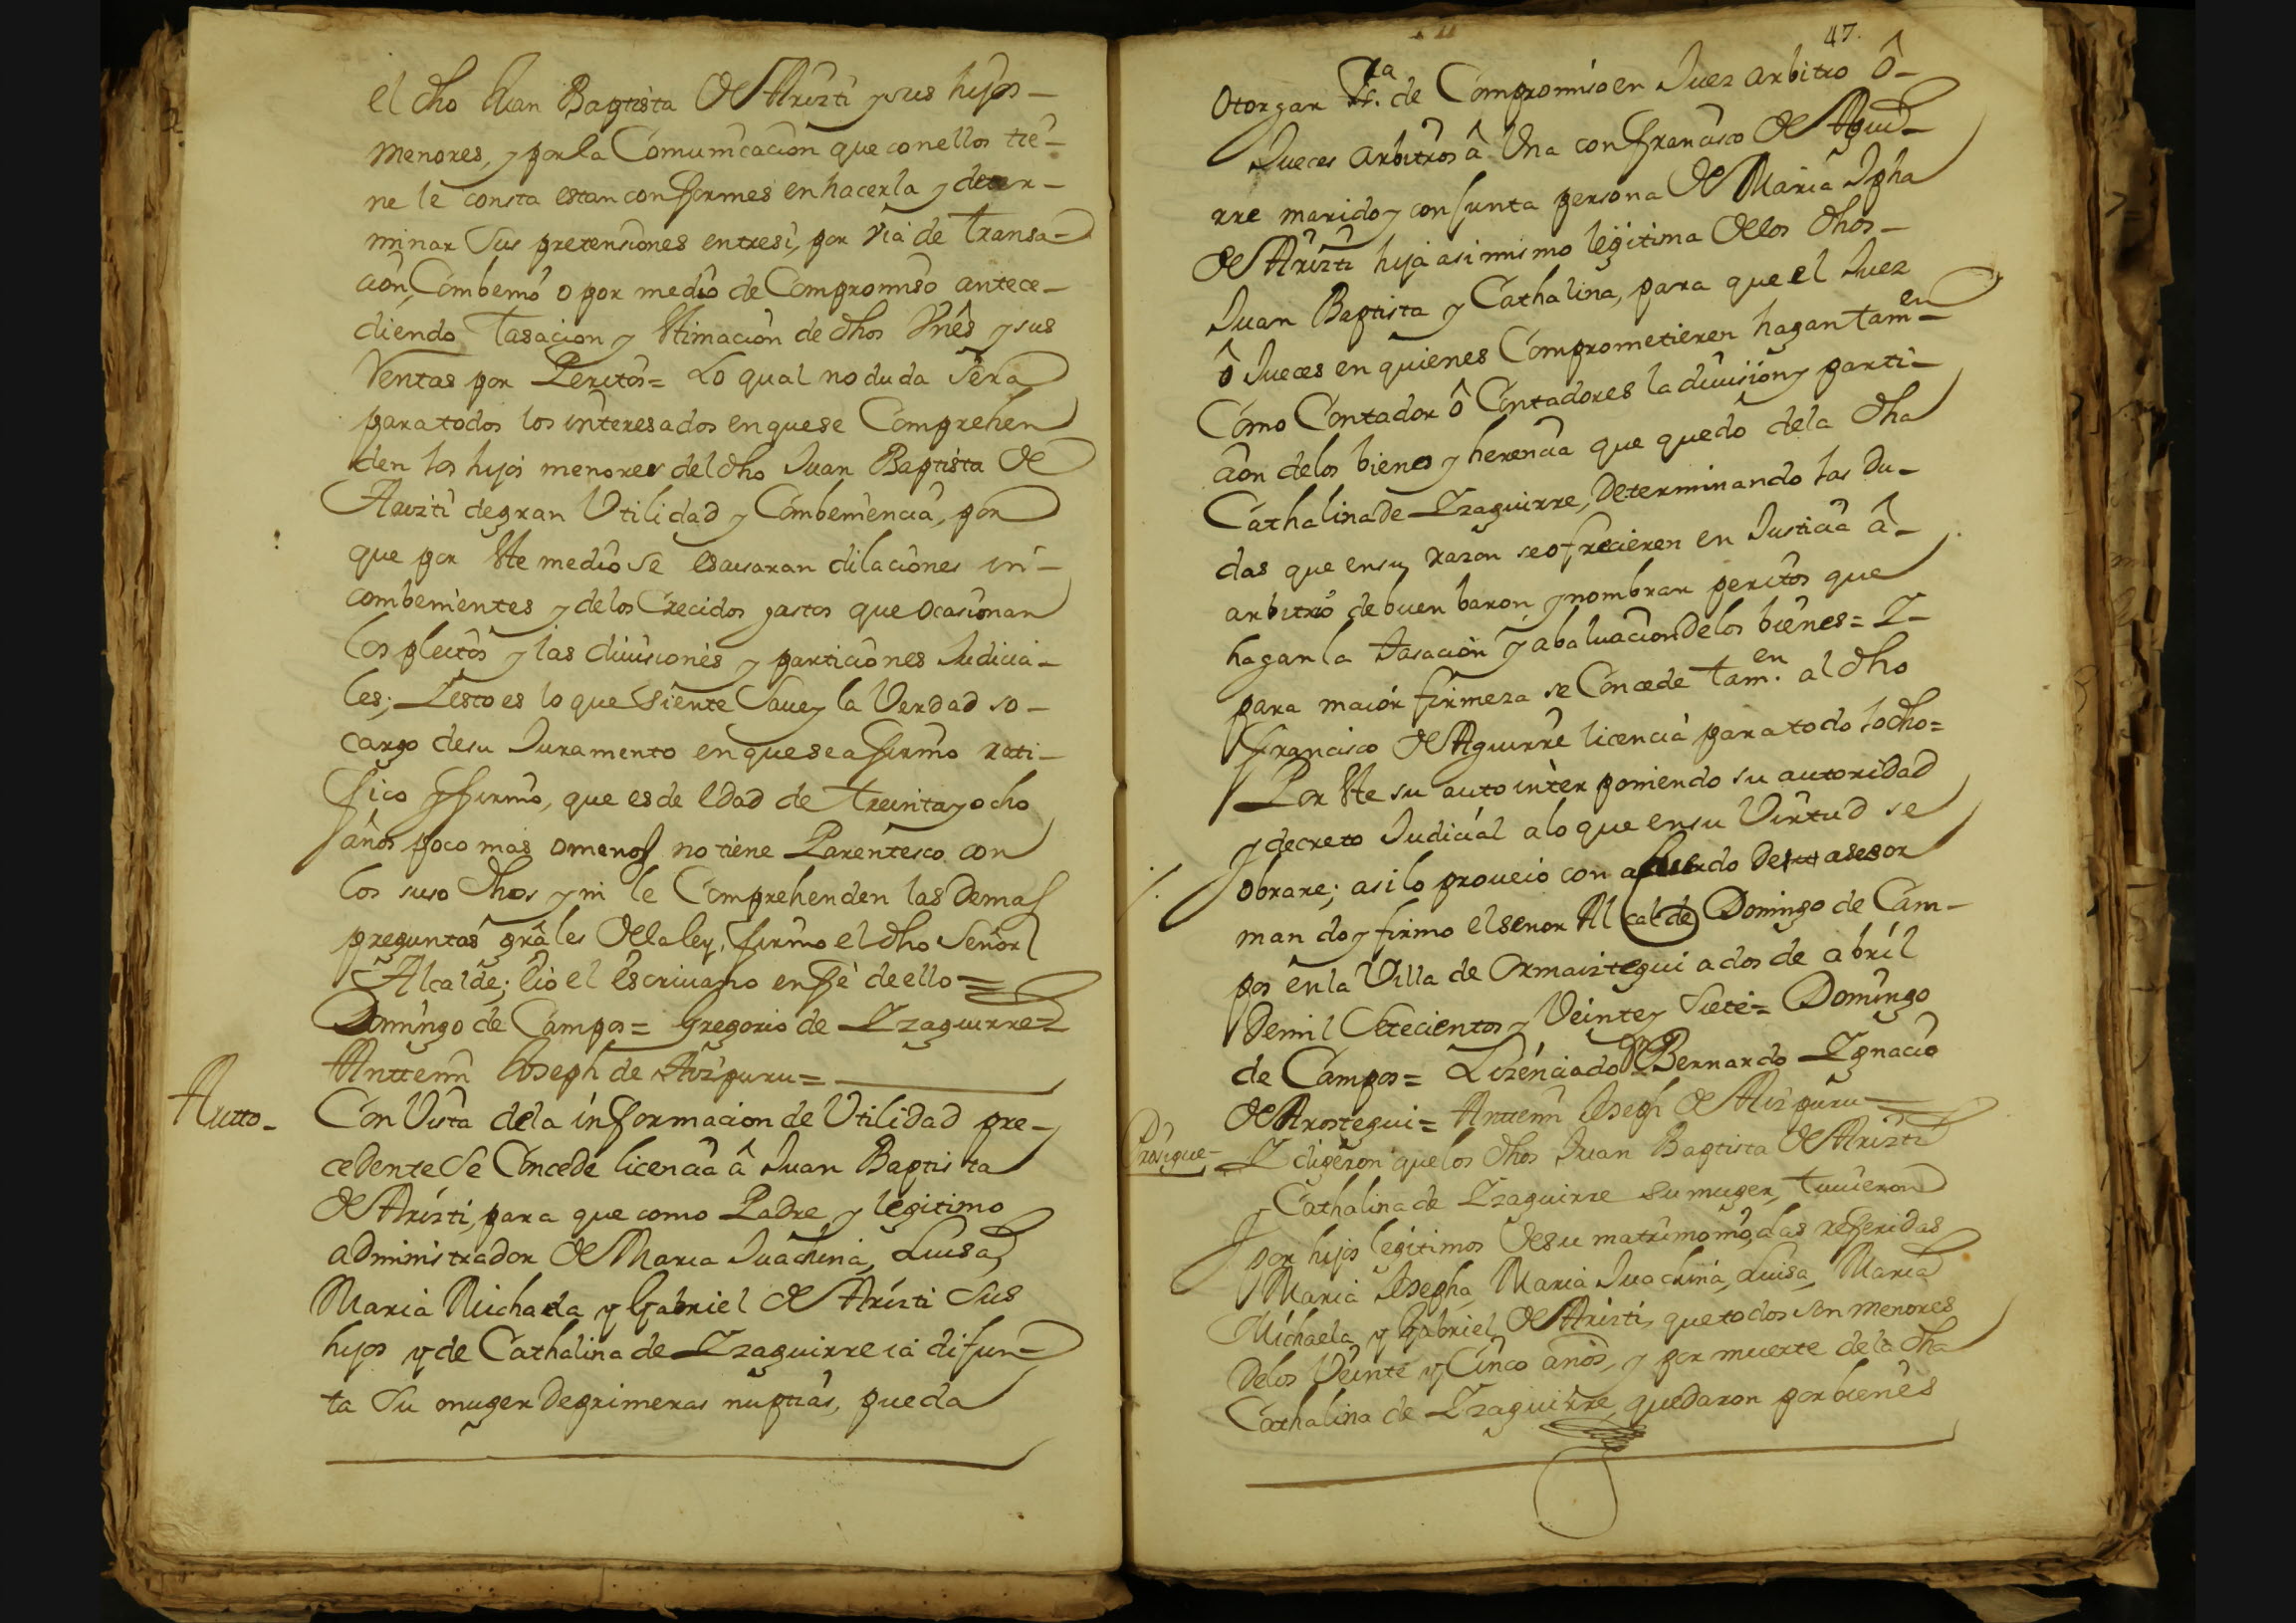 el dho Juan Baptista de Arizti y sus hijos
menores, y por la Comunicacion que con ellos tie-
ne le consta estan conformes en hacerla y deter-
minar sus pretensiones entresi, por via de transa-
cion, Combenio o por medio de Compromiso antece-
diendo tasacion y estimacion de dhos Vnês y sus
Ventas por Peritos= Lo qual no duda sera
para todos los interesados en que se Comprehen
den los hijos menores del dho Juan Baptista de
Arizti de gran Utilidad y Combeniencia, por
que por este medio se escusaran dilaciones in-
combenientes y de los Crecidos gastos que ocasionan
los pleitos y las diuisiones y particiones Judicia-
les; Y esto es lo que siente saue y la Verdad so-
cargo de su Juramento en que se afirmo rati-
fico y firmo, que es de edad de treinta y ocho
años poco mas o menos no tiene Parentesco con
los suso dhos y ni le Comprehenden las demas
preguntas grâles de la ley, firmo el dho Señor
Alcalde; e io el escriuano en fè de ello=
Domingo de Campos= Gregorio de Yzaguirre=
Anttemi Joseph de Aizpuru=
Autto- Con Vista de la informacion de Utilidad pre-
cedente se Concede licencia â Juan Baptista
de Arizti, para que como Padre y legitimo
administrador de Maria Juachina, Luisa,
Maria Michaela y Gabriel de Arizti sus
hijos y de Cathalina de Yzaguirre ia difun-
ta su muger de primeras nuptias, pueda
47.
otorgar ss.ra de Compromiso en Juez arbitro ô-
Jueces arbitros â Una con Francisco de Agui-
rre marido y conjunta persona de Maria Jpha
de Arizti hija asimismo legitima de los dhos-
Juan Baptista y Cathalina, para que el Juez
ô Jueces en quienes Comprometieren hagan tam.en
Como Contador ô Contadores la diuision y parti-
cion de los bienes y herencia que quedô de la dha
Cathalina de Yzaguirre, Determinando las du-
das que en su razon se ofrecieren en Justicia â-
arbitrio de buen baron, y nombran peritos que
hagan la tasacion y abaluacion de los bienes= Y-
para maior firmeza se Concede tam.en al dho
Francisco de Aguirre licencia para todo lo dho=
Por este su auto interponiendo su autoridad
y decreto Judicial a lo que en su Virtud se
obrare; asi lo proueio con acuerdo de su asesor
mando y firmo el senor Alcalde Domingo de Cam-
pos en la Villa de Ormaiztegui a dos de abril
de mil Setecientos y Veinte y Siete= Domingo
de Campos= Lizenciado Dn Bernardo Ygnacio
de Arostegui= Anttemi Joseph de Aizpuru=
Prosigue- Y digeron que los dhos Juan Baptista de Arizti
y Cathalina de Yzaguirre su muger, tuuieron
por hijos legitimos de su matrimonio, â las referidas
Maria Josepha, Maria Juachina, Luisa, Maria
Michaela y Gabriel de Arizti, que todos son menores
de los Veinte y Cinco años, y por muerte de la dha
Cathalina de Yzaguirre, quedaron por bienes